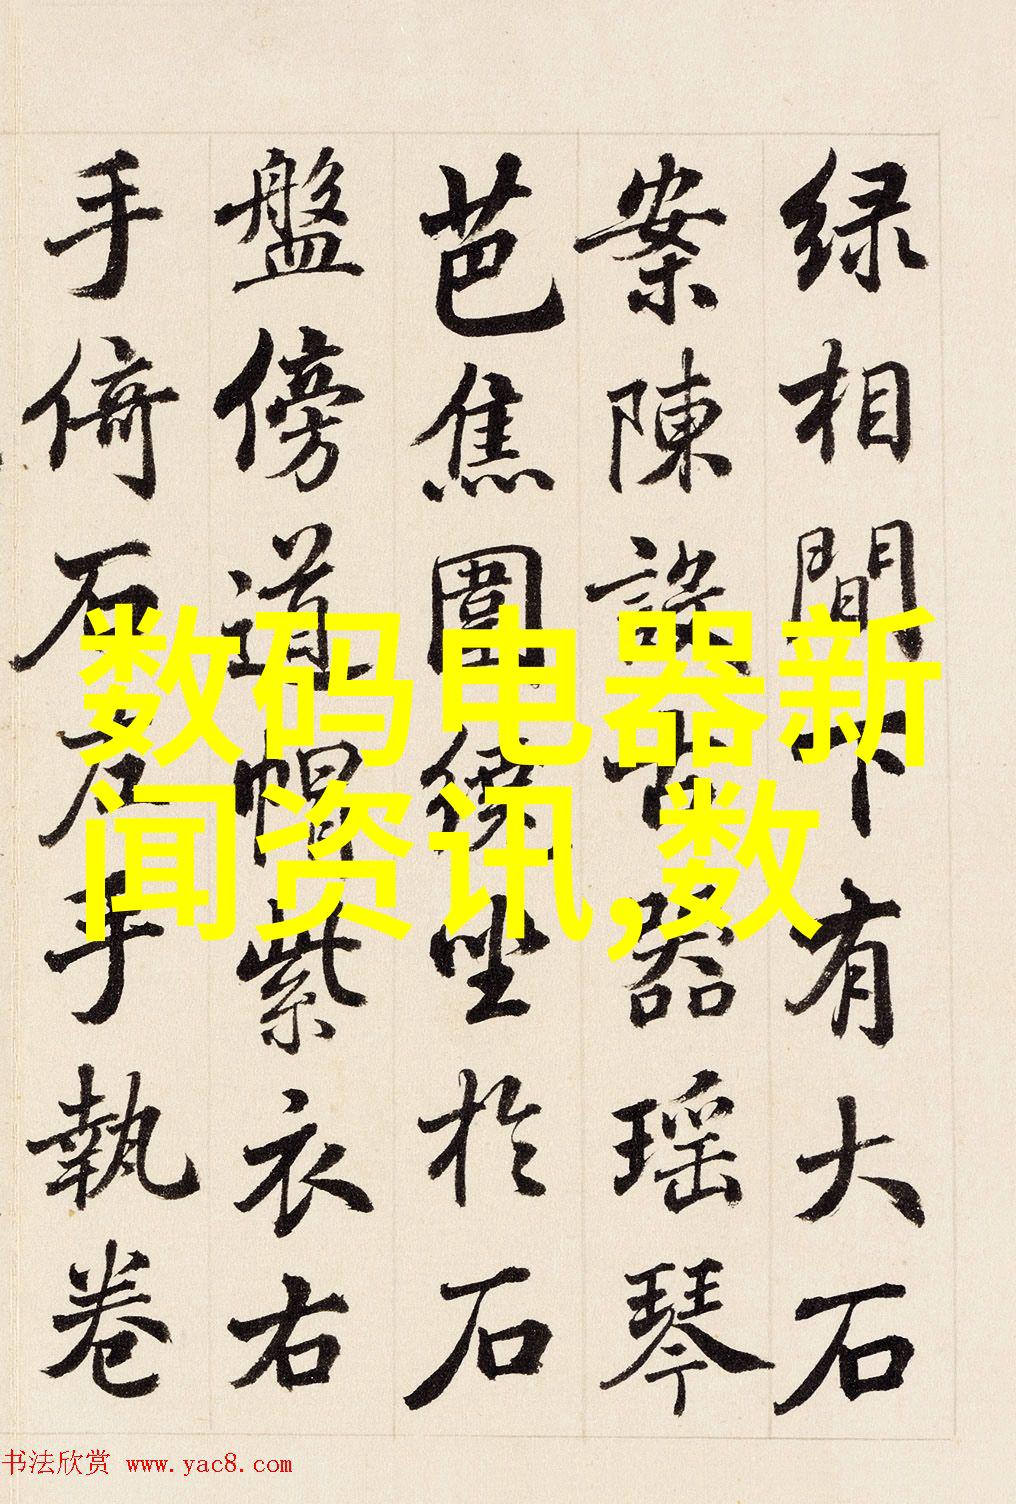 绿相間下有大石
案陳設古器瑶琴
芭焦圍繞坐於石
盤傍道帽紫衣右
手倚石左手執卷
数码电器新
闻资讯,数
书法欣赏 www.yac8.com